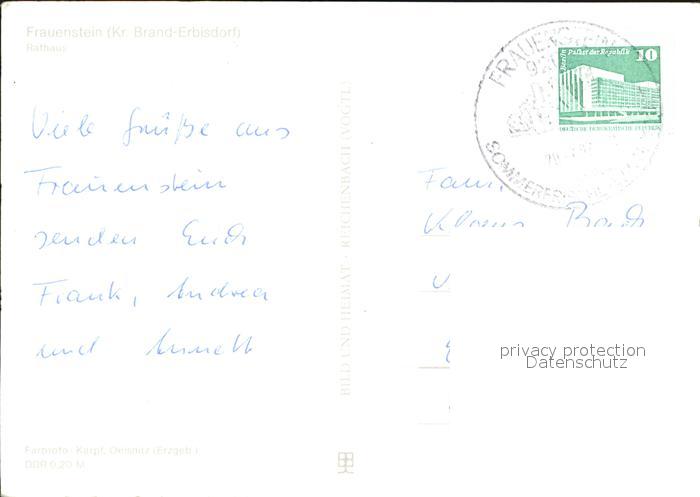 Frauenstein (Kr. Brand-Erbisdorf)
Rathaus
Viele Grüße aus
Frauenstein
senden Euch
Frank, Andrea
und Annett
Farbfoto: Karpf, Oelsnitz (Erzgeb.)
DDR 0,20 M
BILD UND HEIMAT · REICHENBACH (VOGTL)
FRAUENSTEIN
Berlin, Palast der Republik 10
DEUTSCHE DEMOKRATISCHE REPUBLIK
Fam.
Klaus
privacy protection
Datenschutz